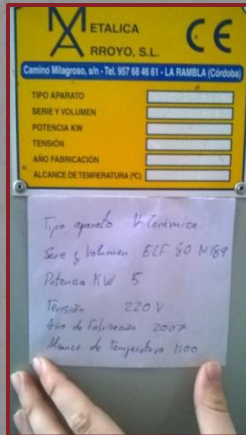 METALICA
ARROYO, S.L.
CE
Camino Milagroso, s/n - Tel. 957 68 46 61 - LA RAMBLA (Córdoba)
TIPO APARATO
SERIE Y VOLUMEN
POTENCIA KW
TENSIÓN
AÑO FABRICACIÓN
ALCANCE DE TEMPERATURA (ºC)
Tipo aparato V-Cerámica
Serie y Volumen ELF 80 Nº 89
Potencia KW 5
Tensión 220 V
Año de Fabricación 2007
Alcance de Temperatura 1100